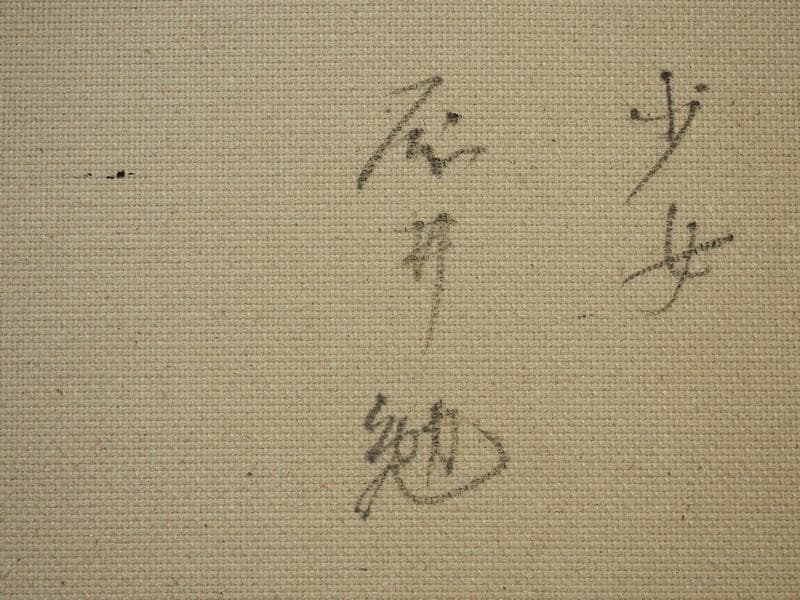 少女
井 勉